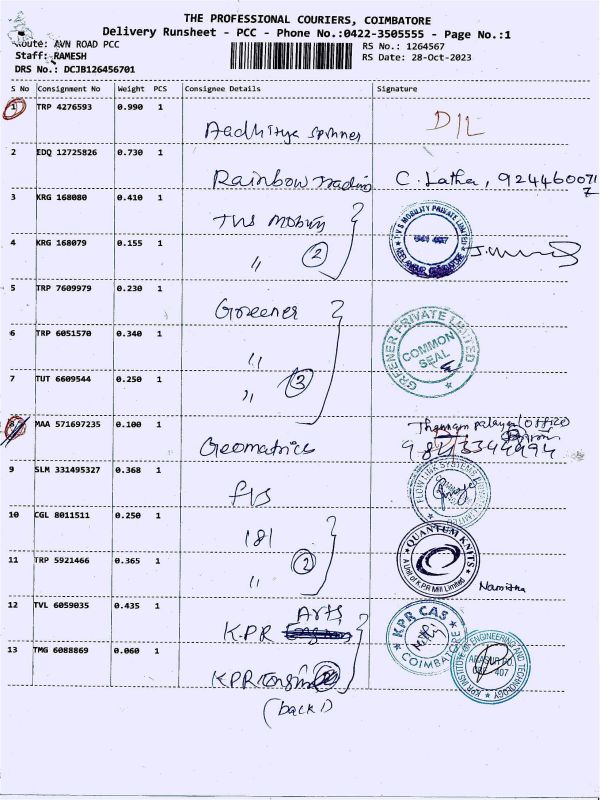 THE PROFESSIONAL COURIERS, COIMBATORE
Delivery Runsheet - PCC - Phone No.:0422-3505555 - Page No.:1
Route: AVN ROAD PCC
RS No.: 1264567
Staff: RAMESH
RS Date: 28-Oct-2023
DRS No.: DCJB126456701
S No Consignment No Weight PCS Consignee Details Signature
1 TRP 4276593 0.990 1
Aadhitya spinners D/L
2 EDQ 12725826 0.730 1
Rainbow Trading C. Latha,
3 KRG 168080 0.410 1
TVS Mobility
T.V.S MOBILITY PRIVATE LIMITED
4 KRG 168079 0.155 1
" 2
5 TRP 7609979 0.230 1
Greener
GREENER PRIVATE LIMITED
6 TRP 6051570 0.340 1
"
COMMON
SEAL
7 TUT 6609544 0.250 1
" 3
8 MAA 571697235 0.100 1
Geomatrics
(office)
9 SLM 331495327 0.368 1
FLS
10 CGL 8011511 0.250 1
181
QUANTUM KNITS
A Unit of K.P.R Mill Limited
11 TRP 5921466 0.365 1
" 2
Namitha
12 TVL 6059035 0.435 1
Arts
KPR
KPR CAS
COIMBATORE
13 TMG 6088869 0.060 1
KPR
KPR INSTITUTE OF ENGINEERING AND TECHNOLOGY
(back 1)